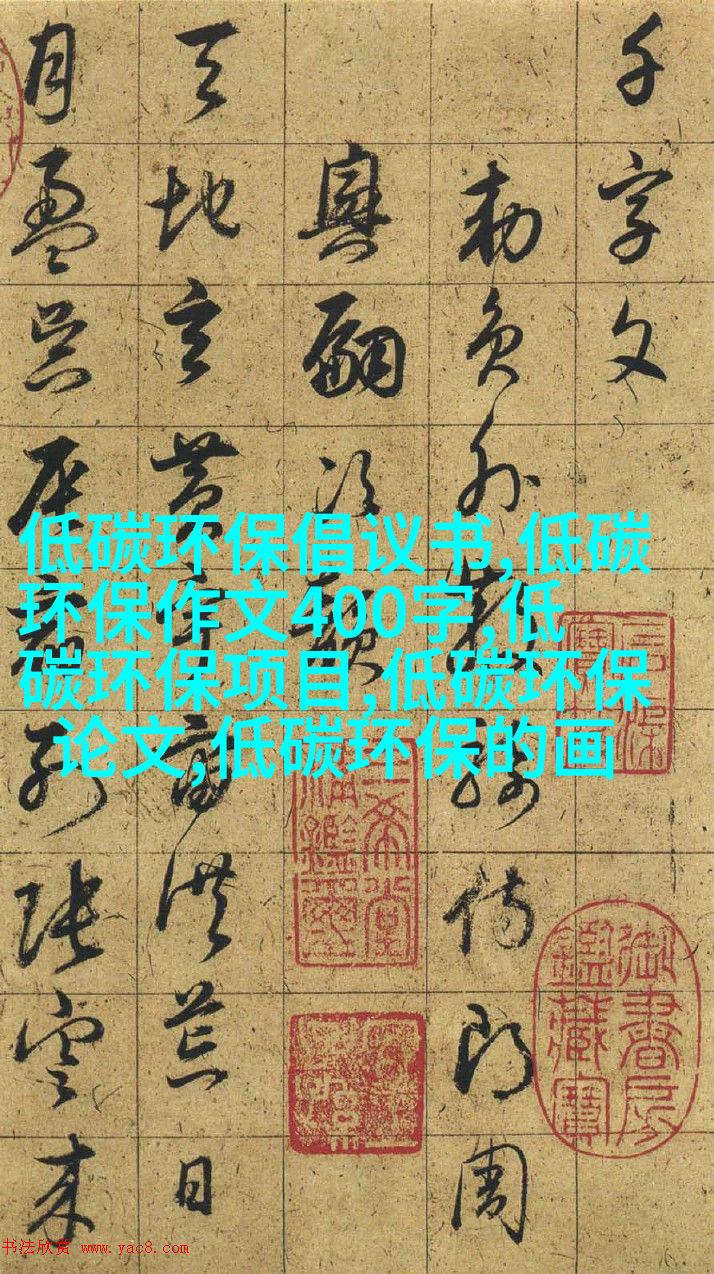 千字文
勅員外散騎侍郎周
興嗣次韻
天地玄黃宇宙洪荒日
月盈昃辰宿列張寒來
低碳环保倡议书,低碳
环保作文400字,低
碳环保项目,低碳环保
论文,低碳环保的画
三希堂精鑑璽
宜子孫
御書房鑑藏寶
书法欣赏 www.yac8.com